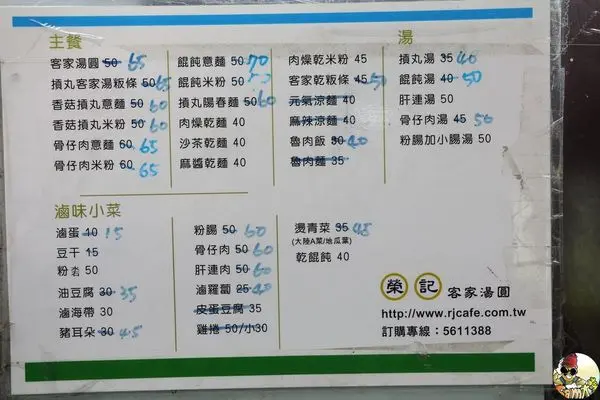 主餐
客家湯圓 50 65
摃丸客家湯粄條 50 65
香菇摃丸意麵 50 60
香菇摃丸米粉 50 60
骨仔肉意麵 60 65
骨仔肉米粉 60 65
餛飩意麵 50 70
餛飩米粉 50
摃丸陽春麵 50 60
肉燥乾麵 40
沙茶乾麵 40
麻醬乾麵 40
肉燥乾米粉 45
客家乾粄條 45 50
元氣涼麵 40
麻辣涼麵 40
魯肉飯 30 40
魯肉麵 35
湯
摃丸湯 35 40
餛飩湯 40 50
肝連湯 50
骨仔肉湯 45 50
粉腸加小腸湯 50
滷味小菜
滷蛋 10 15
豆干 15
粉 50
油豆腐 30 35
滷海帶 30
豬耳朵 30 45
粉腸 50 60
骨仔肉 50 60
肝連肉 50 60
滷羅蔔 25 40
皮蛋豆腐 35
雞捲 50/小30
燙青菜 35 45
(大陸A菜/地瓜葉)
乾餛飩 40
榮記 客家湯圓
http://www.rjcafe.com.tw
訂購專線：5611388